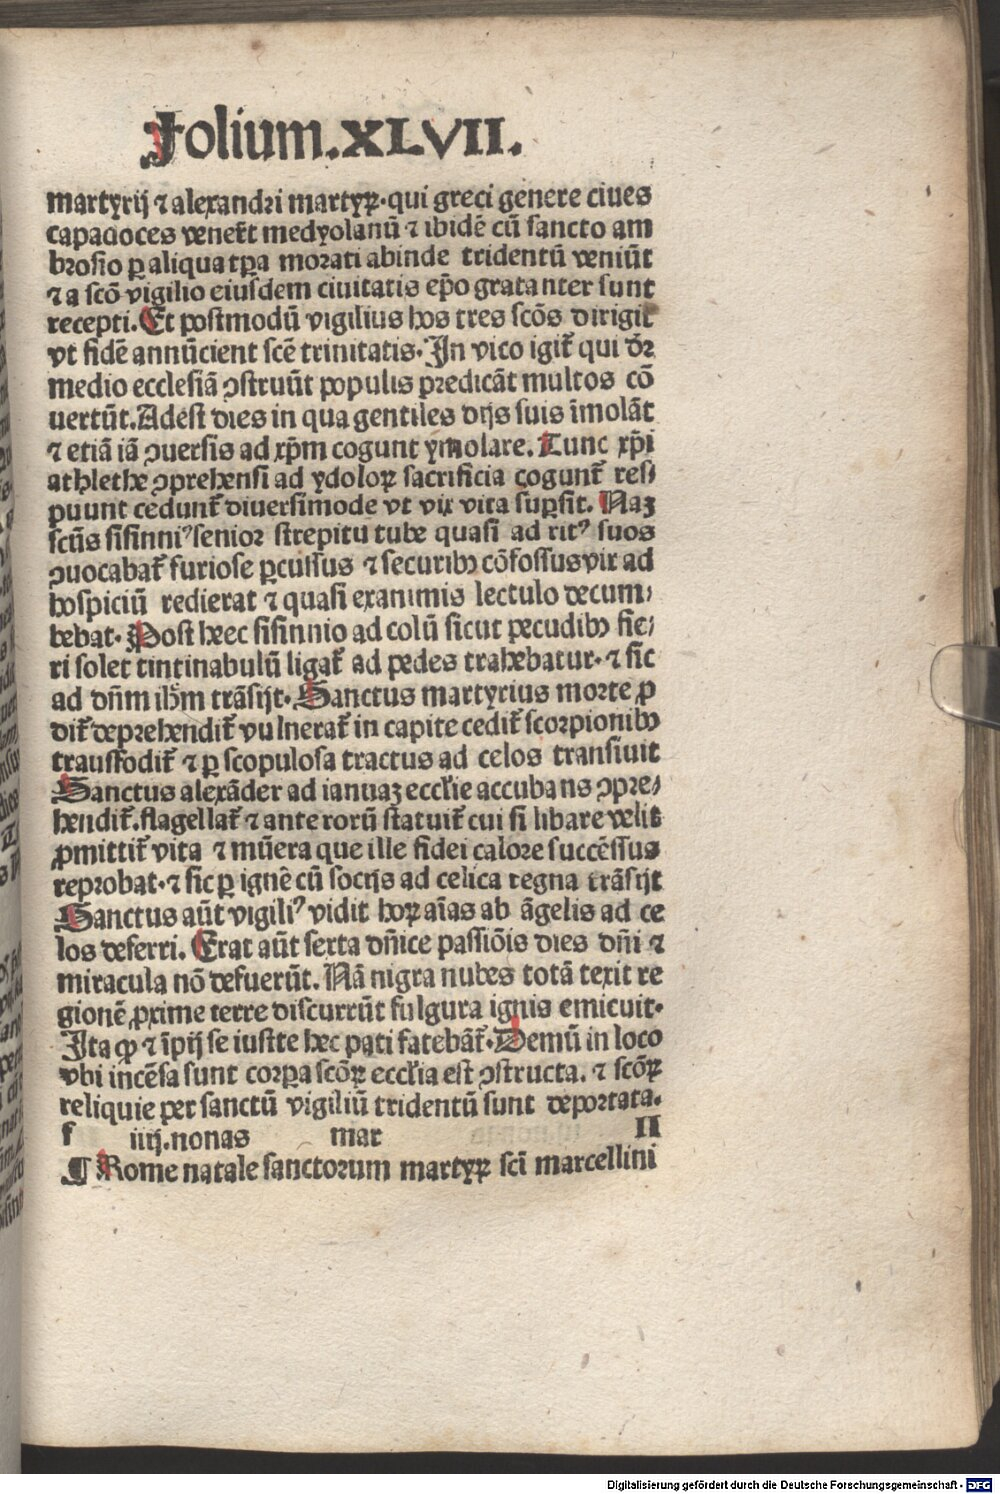 Folium.XLVII.
martyrij ⁊ alexandri martyꝝ·qui greci genere ciues
capadoces venerūt medyolanū ⁊ ibidē cū sancto am
brosio ꝑ aliqua tꝑa morati abinde tridentū veniūt
⁊ a scō vigilio eiusdem ciuitatis ep̄o gratanter sunt
recepti. Et postmodū vigilius hos tres scōs dirigit
vt fidē annūcient scē trinitatis· In vico igit̄ qui dr̄
medio ecclesiā ꝯstruūt populis predicāt multos cō
uertūt. Adest dies in qua gentiles dijs suis īmolāt
⁊ etiā iā ꝯuersis ad xp̄m cogunt ymolare. Tunc xp̄i
athlethe ꝯprehensi ad ydoloꝝ sacrificia cogunt̄ res⸗
puunt cedunt̄ diuersimode vt vix vita suꝑsit. Naꝫ
scūs sisinniꝰ senior strepitu tube quasi ad ritꝰ suos
ꝯuocabat̄ furiose ꝑcussus ⁊ securibꝰ cōfossus vix ad
hospiciū redierat ⁊ quasi exanimis lectulo decum⸗
bebat· Post heec sisinnio ad colū sicut pecudibꝰ fie⸗
ri solet tintinabulū ligat̄ ad pedes trahebatur· ⁊ sic
ad dn̄m ih̄m trāsijt· Sanctus martyrius morte ꝓ
dit̄ deprehendit̄ vulnerat̄ in capite cedit̄ scorpionibꝰ
transfodit̄ ⁊ ꝑ scopulosa tractus ad celos transiuit
Sanctus alexāder ad ianuaꝫ eccl̄ie accubans ꝯpre⸗
hendit̄. flagellat̄ ⁊ ante rorū statuit̄ cui si libare velit
ꝓmittit̄ vita ⁊ mūera que ille fidei calore succēssus
reprobat· ⁊ sic ꝑ ignē cū socijs ad celica regna trāsijt
Sanctus aūt vigiliꝰ vidit hoꝝ aīas ab āgelis ad ce
los deferri. Erat aūt sexta dn̄ice passiōis dies dn̄i ⁊
miracula nō defuerūt. Nā nigra nubes totā texit re
gionē ꝓxime terre discurrūt fulgura ignis emicuit·
Ita ꝙ ⁊ īpij se iuste hec pati fatebāt̄· Demū in loco
vbi incēsa sunt corꝑa scōꝝ eccl̄ia est ꝯstructa. ⁊ scōꝝ
reliquie per sanctū vigiliū tridentū sunt deportata.
f iiij.nonas mar II
¶ Rome natale sanctorum martyꝝ sci̅ marcellini
Digitalisierung gefördert durch die Deutsche Forschungsgemeinschaft - DFG